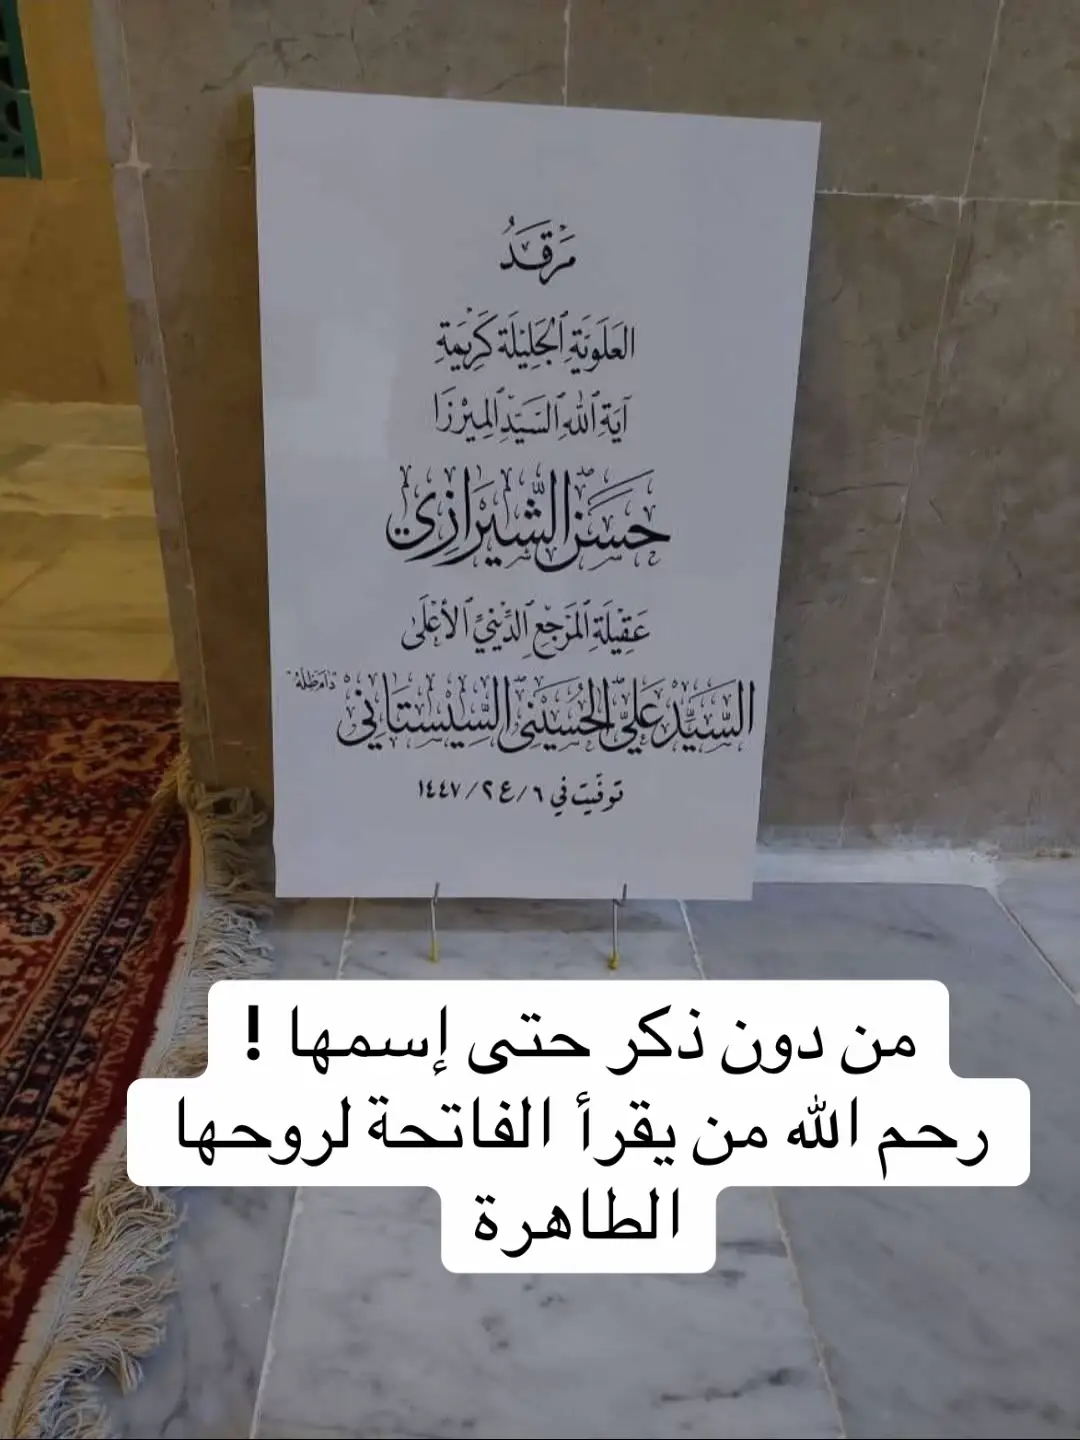 مَرْقَدُ
العَلَوِيَّةِ الجَلِيلَةِ كَرِيمَةِ
آيَةِ اللهِ السَّيِّدِ المِيرْزَا
حَسَن الشِّيرَازِي
عَقِيلَةِ المَرْجَعِ الدِّينِيِّ الأَعْلَى
السَّيِّدِ عَلِيّ الحُسَيْنِيّ السِّيسْتَانِيّ "دَامَ ظِلُّهُ"
توفّيت في ٦/ ع٢/ ١٤٤٧
من دون ذكر حتى إسمها !
رحم الله من يقرأ الفاتحة لروحها
الطاهرة